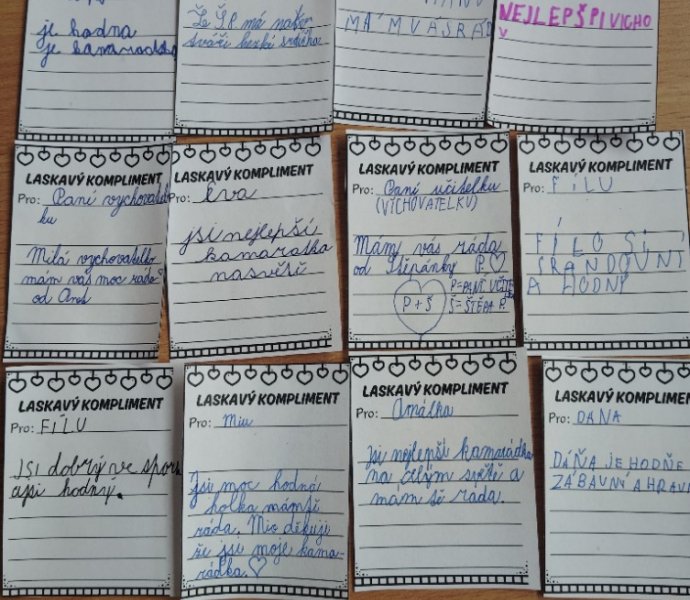 je hodna
je kamaradska
Že Š.P. má na
tváři hezké srdíčko.
MÁM VÁS RÁD
NEJLEPŠPIVICHO
V
LASKAVÝ KOMPLIMENT
Pro: Paní vychovatel
ku
Milá vychovatelko
mám vás moc ráda
od Anet
LASKAVÝ KOMPLIMENT
Pro: Eva
jsi nejlepší
kamaratka
nasvětě
LASKAVÝ KOMPLIMENT
Pro: Paní učitelku
(VICHOVATELKU)
Mám vás ráda
od Štěpánky P. ♡
P+Š
P=PANÍ UČITE
Š=ŠTĚPA Ř
LASKAVÝ KOMPLIMENT
Pro: FÍLU
FÍLO SI
SRANDOVNÍ
A HODNÝ
LASKAVÝ KOMPLIMENT
Pro: FÍLU
Jsi dobrý ve spor
a jsi hodný.
LASKAVÝ KOMPLIMENT
Pro: Miu
Jsi moc hodná
holka mám tě
ráda. Mio děkuji
že jsi moje kama-
rádka. ♡
LASKAVÝ KOMPLIMENT
Pro: Amálka
Jsi nejlepší kamarádka
na celým světě a
mám tě ráda.
LASKAVÝ KOMPLIMENT
Pro: DANA
DÁŇA JE HODNĚ
ZÁBAVNÍ A HRAVÍ